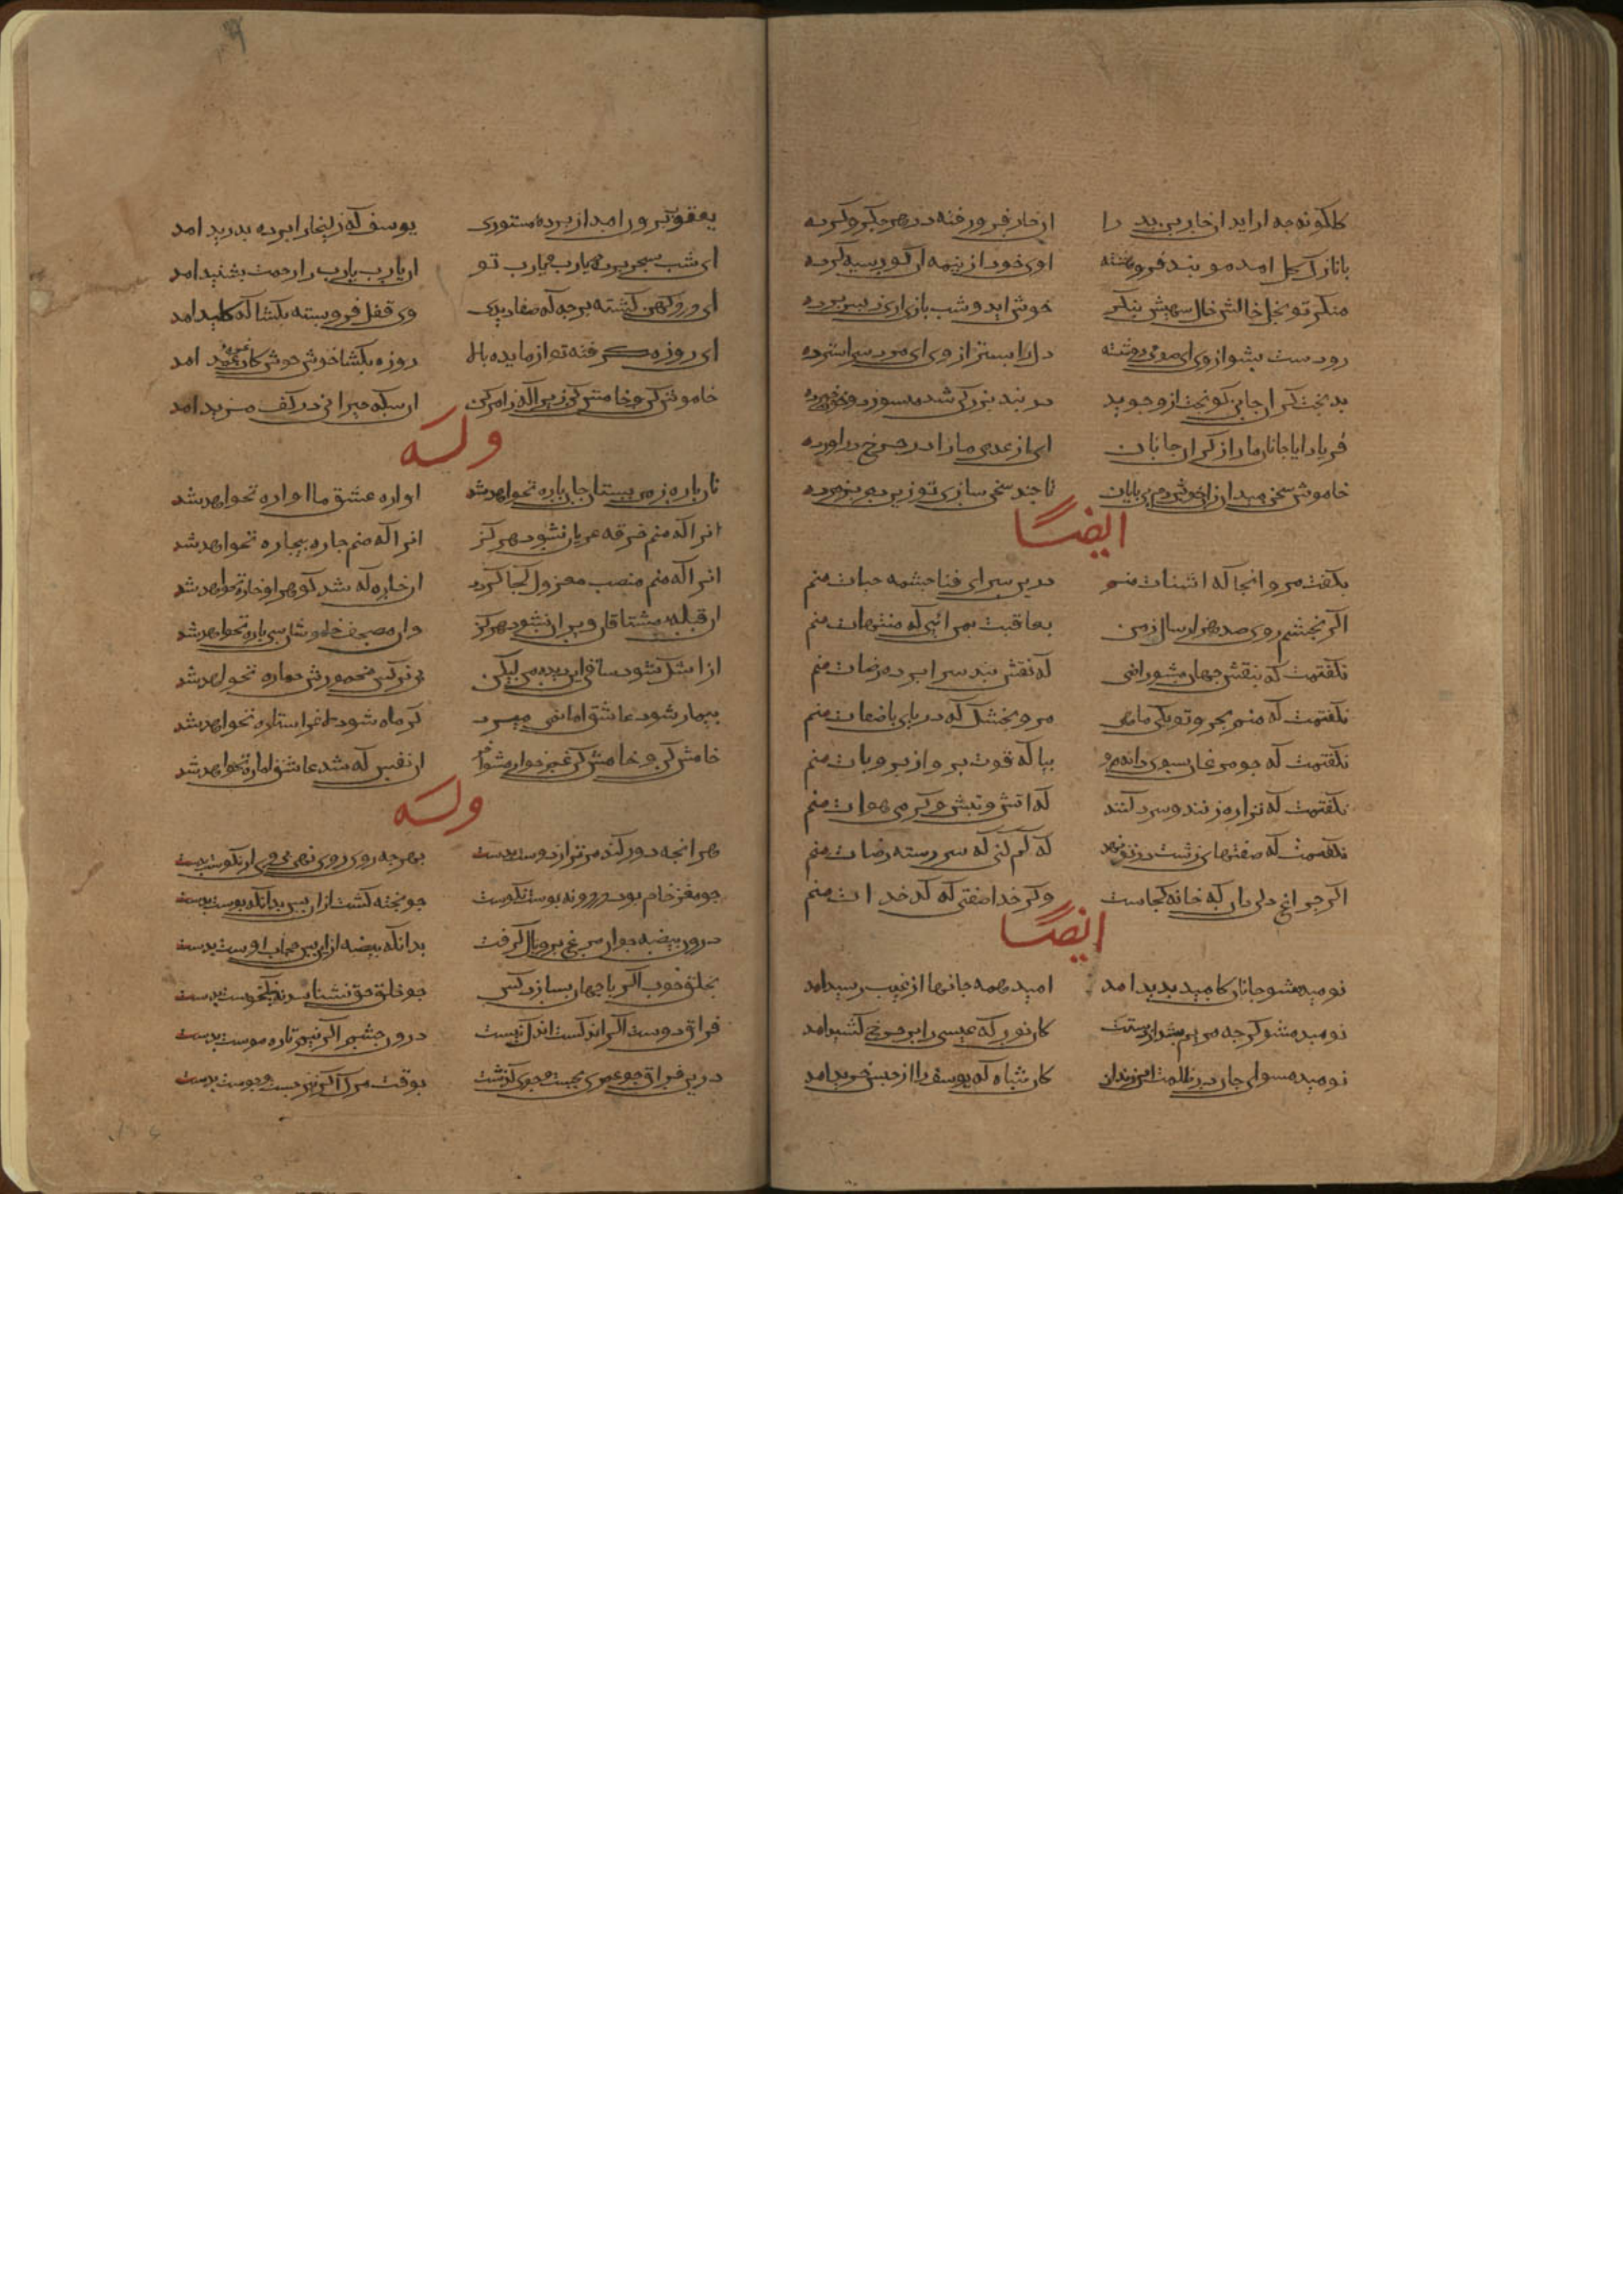 کلکونه جه اراید ار خار بی بد را از خار فرورفته در هر جکر و کرده
با ناز
منکر تو خوش اید و شب بازی
رو دست بشو از وی ای
بدبخت کر ان جانی کو بخت ازو جوید در بند بزرکی شد
فریاد ایا جانان ما را از کران جانان ای از عدمی ما را در جرخ دراورده
خاموش سخن میدان تا جند سخن سازی تو زین
ایضا
بکفت مرو انجا که اشنات منم درین سرای فنا جشمه حیات منم
اکر بخشم روی صد هزار سال ز من بعاقبت بمن ائی که منتهات منم
نکفتمت که بنقش جهان مشو راضی که نقش بند سرابرده رضات منم
نکفتمت که منم بحر و تو یکی ماهی مرو بخشک که دریای باصفات منم
نکفتمت که جو مرغان بسوی دام مرو بیا که قوت برواز بر و بات منم
نکفتمت که ترا ره زنند و سرد کنند که اتش و تبش و کرمی هوات منم
نکفتمت که صفتهای زشت در تو نهد که کم کنی که سر رسته رضات منم
اکر جراغ دلی دان که خانه کجاست وکر خدا صفتی که کدخدات منم
ایضا
نومید مشو جانا کامید بدید امد امید همه جانها از غیب رسید امد
نومید مشو کرجه مریم بشد از دستت کان نور که عیسی را بر جرخ کشید امد
نومید مشو ای جان در ظلمت این زندان کان شاه که یوسف را از حبس خرید امد
یعقوب برون امد از برده مستوری یوسف که زلیخا را برده بدرید امد
ای شب بسحر برده یارب یارب تو ان یارب یارب را رحمت بشنید امد
ای درد کهن کشته برجه که شفا دیدی وی قفل فروبسته بکشا که کلید امد
ای روزه کرفته تو از مایده بالا روزه بکشا خوش خوش کان غره عید امد
خاموش کن و خامش کن زیرا که ز امر کن ان سکته حیرانی در کف مزید امد
وله
تا باره ز من بستان جان باره نخواهد شد اواره عشق ما اواره نخواهد شد
انرا که منم خرقه عریان نشود هرکز انرا که منم جاره بیجاره نخواهد شد
انرا که منم منصب معزول کجا کردد ان خاره که شد کوهر او خاره نخواهد شد
ان قبله مشتاقان ویران نشود هرکز وان مصحف خاموشان سی باره نخواهد شد
از اشک نشود ساقی این دیده من لیکن بی نرکس مخمورش خماره نخواهد شد
بیمار شود عاشق اما نمی میرد کر ماه شود لاغر استاره نخواهد شد
خامش کن و خامش کن غمخوار مشو ان نفس که شد عاشق اماره نخواهد شد
وله
هر انجه دور کند مر ترا ز دوست بدست بهرجه روی نهی بی وی ار نکوست بدست
جو مغز خام بود در درونه بوست نکوست جو بخته کشت ازان بس بدانکه بوست بدست
درون بیضه جو ان مرغ بر و بال کرفت بدانکه بیضه ازان بس حجاب اوست بدست
بخلق خوب اکر با جهان بسازد کس جو خلق حق نشناسد نه نیکخوست بدست
فراق دوست اکر اندکست اندک نیست درون جشم اکر نیم تاره موست بدست
درین فراق جو عمری بجست و جوی کذشت بوقت مرک اکر نیز جست و جوست بدست